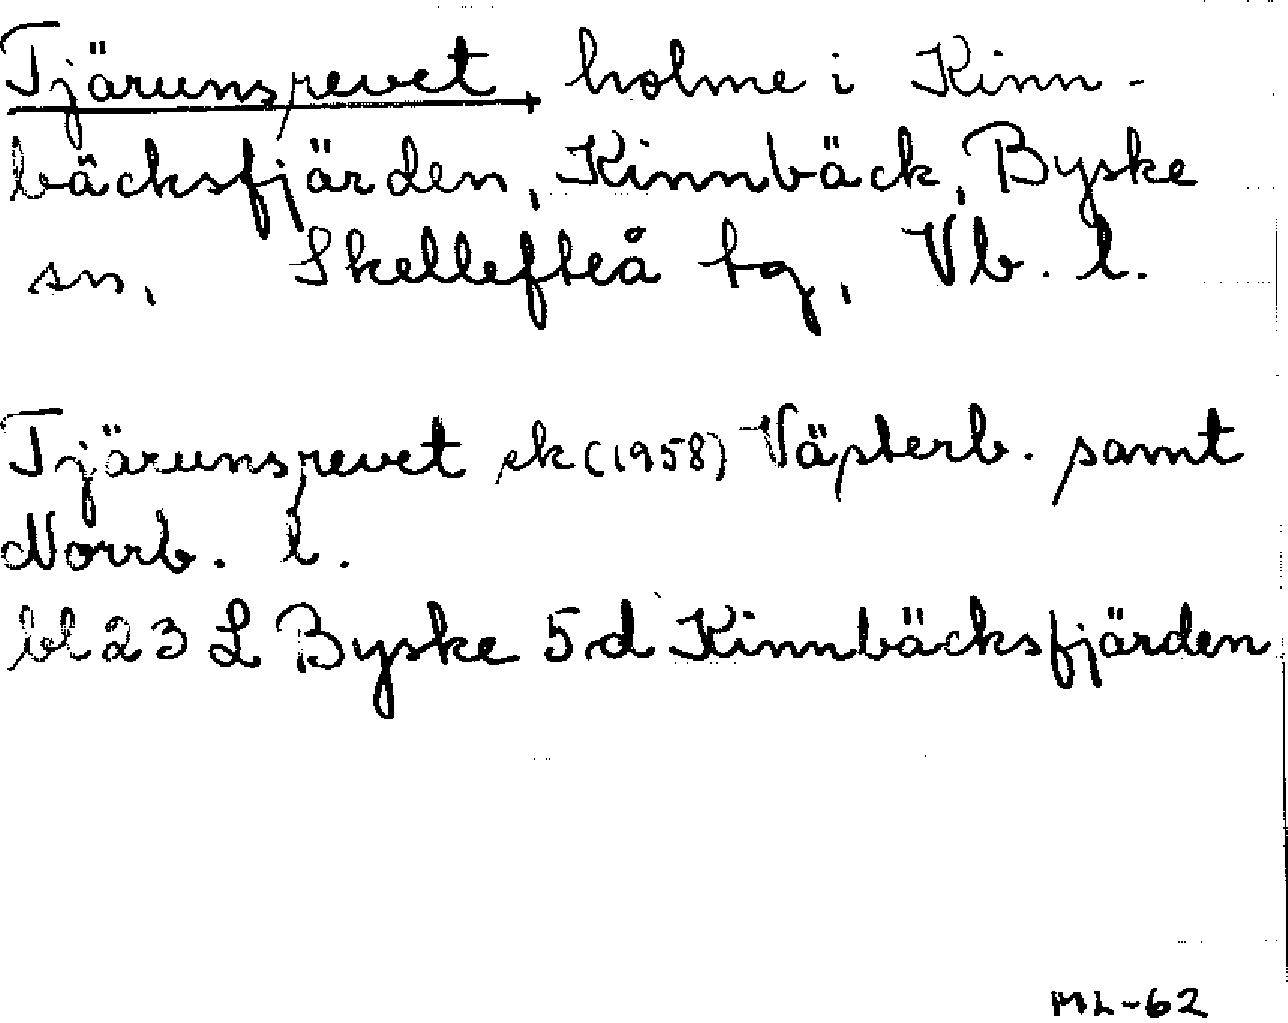 Tjärunsrevet, holme i Kinn-
bäcksfjärden, Kinnbäck, Byske
sn, Skellefteå tg, Vb. l.
Tjärunsrevet ek (1958) Västerb. samt
Norrb. l.
bl 23 L Byske 5d Kinnbäcksfjärden
ML-62